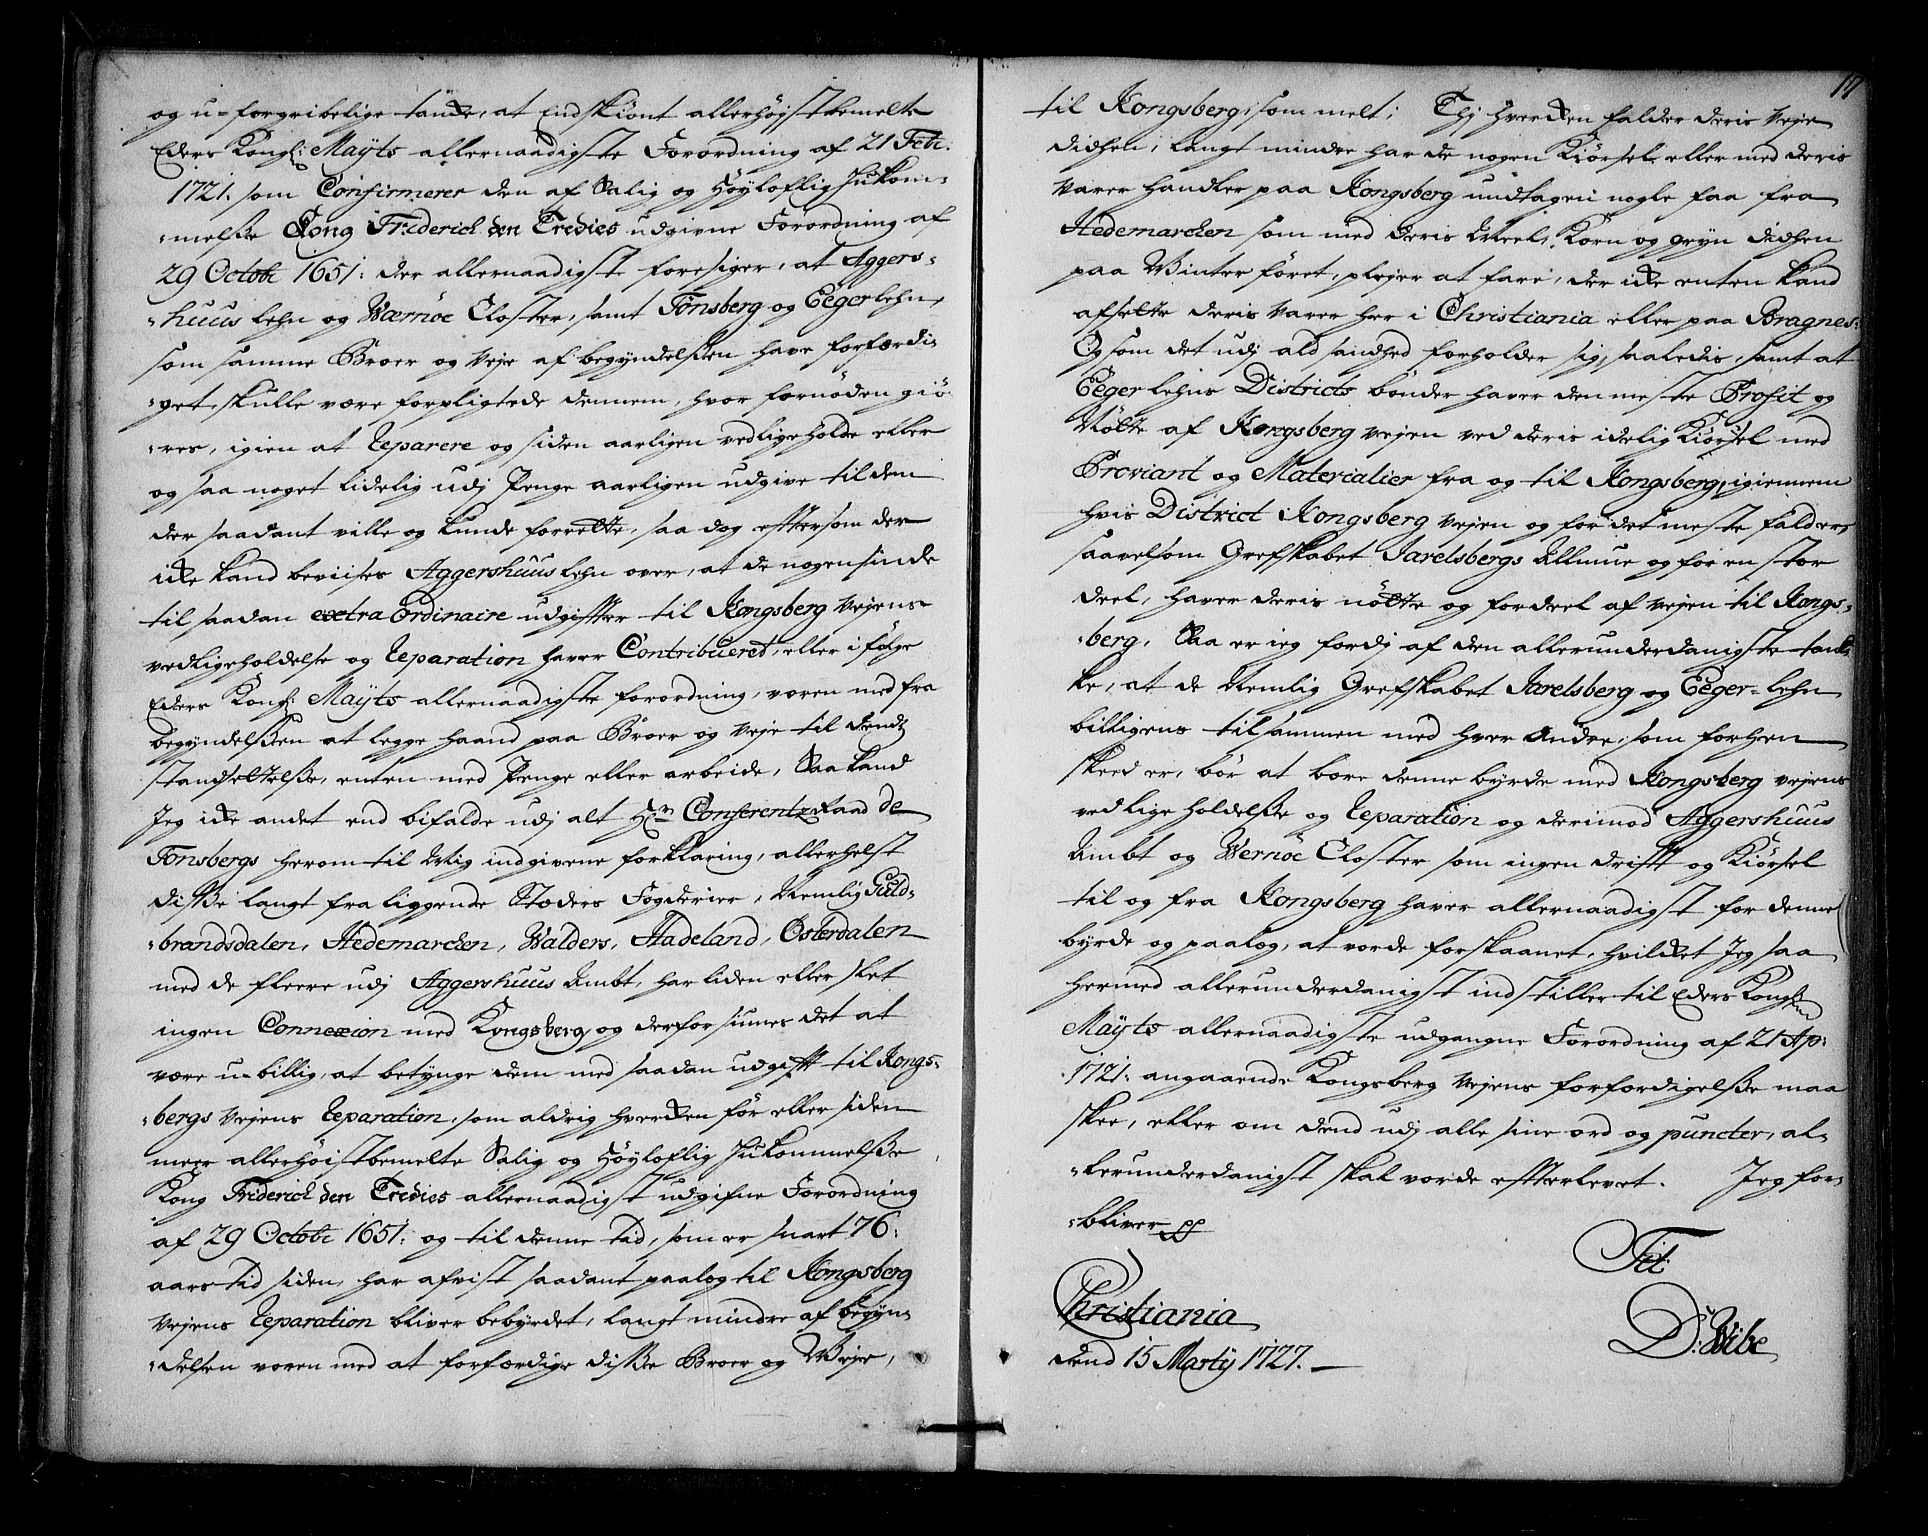 og u-forgribelige tancke, at Endskiönt allerhöystbemelte
Eders Kongl: Maÿts allernaadigste Forordning af 21 Febr:
1721. som Confirmerer den af Salig og Höyloflig Jhukom-
-melsse Kong Friderich den Tredies udgivne Forordning af
29 Octobr 1651: der allernaadigste foresiger, at Aggers-
-huus Lehn og Wærnöe Closter, samt Tönsberg og Eeger lehn,
som samme Broer og Veje af begyndelssen have forfærdi-
-get, skulle være forpligtede dennem, hvor fornöden giö-
-res, igien at Reparere og siden aarligen vedligeholde eller
og saa noget lidelig udj Penge aarligen udgive til dem
der saadant ville og kunde forrette, saa dog efftersom der
icke kand beviises Aggershuus Lehn over, at de nogensinde
til saadan extra Ordinaire udgiffter til Kongsberg Vejens
vedligeholdelse og Reparation haver Contribueret, eller i fölge
Eders Kongl: Maÿts allernaadigste forordning, voren med fra
begyndelssen at legge haand paa Broer og Veje til dends
standsettelsse, enten med Penge eller arbeide, Saa kand
Jeg icke andet end bifalde udj alt Hr: Conferentz Raad de
Tonsbergs herom til Mig indgivene forklaring, allerhelst
disse langt fra liggende Stæders Fogderier, Nemlig Guld-
-brandsdalen, Hedemarchen, Walders, Hadeland, Österdalen
med de fleere udj Aggershuus Ambt, har liden eller slet
ingen Connexion med Kongsberg, og derfor siunes det at
være u-billig, at betynge dem med saadan udgifft til Kongs-
-bergs Vejens Reparation, som aldrig hvercken för eller siden
meer allerhöistbemelte Salig og Höyloflig Jhukommelsse
Kong Friderich den Tredies allernaadigst udgifne Forordning
af 29 Octobr 1651: og til denne tid, som er snart 76:
aars tid siden, har afvist saadant paalæg til Kongsberg
Vejens Reparation bliver bebyrdet, langt mindre af begyn-
-delsen voren med at forfærdige disse Broer og Veje,
17
til Kongsberg, som melt; Thj hvercken falder deris Veje
didhen, langt mindre har de nogen Kiörsel eller med deris
Varer handler paa Kongsberg undtagen nogle faa fra
Hedemarchen som med deris Meel, Korn og gryn didhen
paa Winter föret, plejer at fare, der icke enten kand
afsette deris Varer her i Christiania eller paa Bragnes:
Og som det udj ald sandhed forholder sig saaledis, samt at
Eeger Lehns Districts bönder haver den meste Profit og
Nötte af Kongsberg Vejen ved deris idelig Kiörsel med
Proviant og Materialier fra og til Kongsberg, igiennem
hvis District Kongsberg Vejen og for det meste falder,
saavelsom Grefskabet Jarelsbergs Almue og for en stor
deel, haver deris nötte og fordeel af Vejen til Kongs-
-berg, Saa er jeg fordj af den allerunderdanigste tan-
ke, at de Nemlig Grefskabet Jarelsberg og Eeger-lehn
billigens tilsammen med hver Andre, som forhen
skeed er, bör at bære denne byrde med Kongsberg Vejens
vedlige holdelsse og Reparation og derimod Aggershuus
Ambt og Wernöe Closter som ingen drifft og Kiörsel
til og fra Kongsberg haver allernaadigst for denne
byrde og paalæg, at vorde forskaanet, hvilcket Jeg saa
hermed allerunderdanigst indstiller til Eders Kongl:
Maÿts allernaadigste udgangne Forordning af 21 Ap:
1721: angaaende Kongsberg Vejens forfærdigelsse maa
skee, eller om dend udj alle sine ord og puncter, al-
-lerunderdanigst skal vorde effterlevet. Jeg for-
-bliver pp
Tit
Christiania D: Wibe
dend 15 Martÿ 1727.